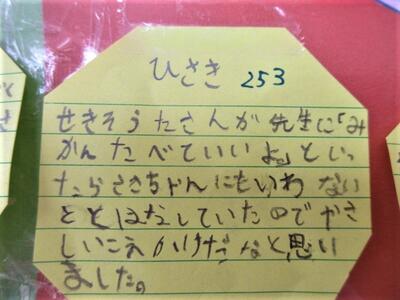 ひさき 253
せきそうたさんが先生に「み
かんたべていいよ。」といっ
たらささちゃんにもいわない
ととはなしていたのでやさ
しいこえかけだなと思い
ました。